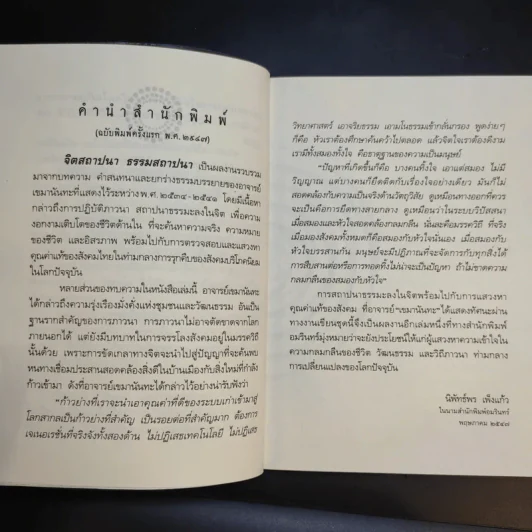 คำนำสำนักพิมพ์
(ฉบับพิมพ์ครั้งแรก พ.ศ. ๒๕๔๗)
จิตสถาปนา ธรรมสถาปนา เป็นผลงานรวบรวม
มาจากบทความ คำสนทนาและยกร่างธรรมบรรยายของอาจารย์
เขมานันทะที่แสดงไว้ระหว่าง พ.ศ. ๒๕๓๔-๒๕๔๑ โดยมีเนื้อหา
กล่าวถึงการปฏิบัติภาวนา สถาปนาธรรมะลงในจิต เพื่อความ
งอกงามเติบโตของชีวิตด้านใน ที่จะค้นหาความจริง ความหมาย
ของชีวิต และอิสรภาพ พร้อมไปกับการตรวจสอบและแสวงหา
คุณค่าแท้ของสังคมไทยในท่ามกลางการรุกคืบของสังคมบริโภคนิยม
ในโลกปัจจุบัน
หลายส่วนของบทความในหนังสือเล่มนี้ อาจารย์เขมานันทะ
ได้กล่าวถึงความรุ่งเรืองมั่งคั่งแห่งชุมชนและวัฒนธรรม อันเป็น
ฐานรากสำคัญของการภาวนา การภาวนาไม่อาจตัดขาดจากโลก
ภายนอกได้ แต่ยังมีบทบาทในการจรรโลงสังคมอยู่ในมรรควิถี
นั้นด้วย เพราะการขัดเกลาทางจิตจะนำไปสู่ปัญญาที่จะค้นพบ
หนทางเชื่อมประสานสอดคล้องสิ่งดีในบ้านเมืองกับสิ่งใหม่ที่กำลัง
ก้าวเข้ามา ดังที่อาจารย์เขมานันทะได้กล่าวไว้อย่างน่ารับฟังว่า
"ก้าวย่างที่เราจะนำเอาคุณค่าที่ดีของระบบเก่าเข้ามาสู่
โลกสากลเป็นก้าวย่างที่สำคัญ เป็นรอยต่อที่สำคัญมาก ต้องการ
เจเนอเรชั่นที่จริงจังทั้งสองด้าน ไม่ปฏิเสธเทคโนโลยี ไม่ปฏิเสธ
วิทยาศาสตร์ เอาจริยธรรม เอามโนธรรมเข้ากลั่นกรอง พูดง่ายๆ
ก็คือ หัวเราต้องศึกษาค้นคว้าไปตลอด แล้วจิตใจเราต้องดีงาม
เรามีทั้งสมองทั้งใจ คือธาตุฐานของความเป็นมนุษย์
"ปัญหาที่เกิดขึ้นก็คือ บางคนทั้งใจ เอาแต่สมอง ไม่มี
วิญญาณ แต่บางคนก็ยึดติดกับเรื่องใจอย่างเดียว มันก็ไม่
สอดคล้องกับความเป็นจริงด้านวัตถุวิสัย ดูเหมือนทางออกที่ควร
จะเป็นคือการยึดทางสายกลาง ดูเหมือนว่าในระบบวิปัสสนา
เมื่อสมองและหัวใจสอดคล้องกลมกลืน นั่นละคือมรรควิถี ที่จริง
เมื่อมองสังคมทั้งหมดก็คือสมองกับหัวใจนั่นเอง เมื่อสมองกับ
หัวใจบรรสานกัน มนุษย์จะมีปัญญาที่จะจัดการกับทุกสิ่งได้
การสืบสานต่อหรือการทอดทิ้งไม่น่าจะเป็นปัญหา ถ้าไม่ขาดความ
กลมกลืนของสมองกับหัวใจ"
การสถาปนาธรรมะลงในจิตพร้อมไปกับการแสวงหา
คุณค่าแท้ของสังคม ที่อาจารย์เขมานันทะได้แสดงทัศนะผ่าน
ทางงานเขียนชุดนี้จึงเป็นผลงานอีกเล่มหนึ่งที่ทางสำนักพิมพ์
อมรินทร์มุ่งหมายว่าจะยังประโยชน์ให้แก่ผู้แสวงหาความเข้าใจใน
ความกลมกลืนของชีวิต วัฒนธรรม และวิถีภาวนา ท่ามกลาง
การเปลี่ยนแปลงของโลกปัจจุบัน
นิพัทธ์พร เพ็งแก้ว
ในนามสำนักพิมพ์อมรินทร์
พฤษภาคม ๒๕๔๗